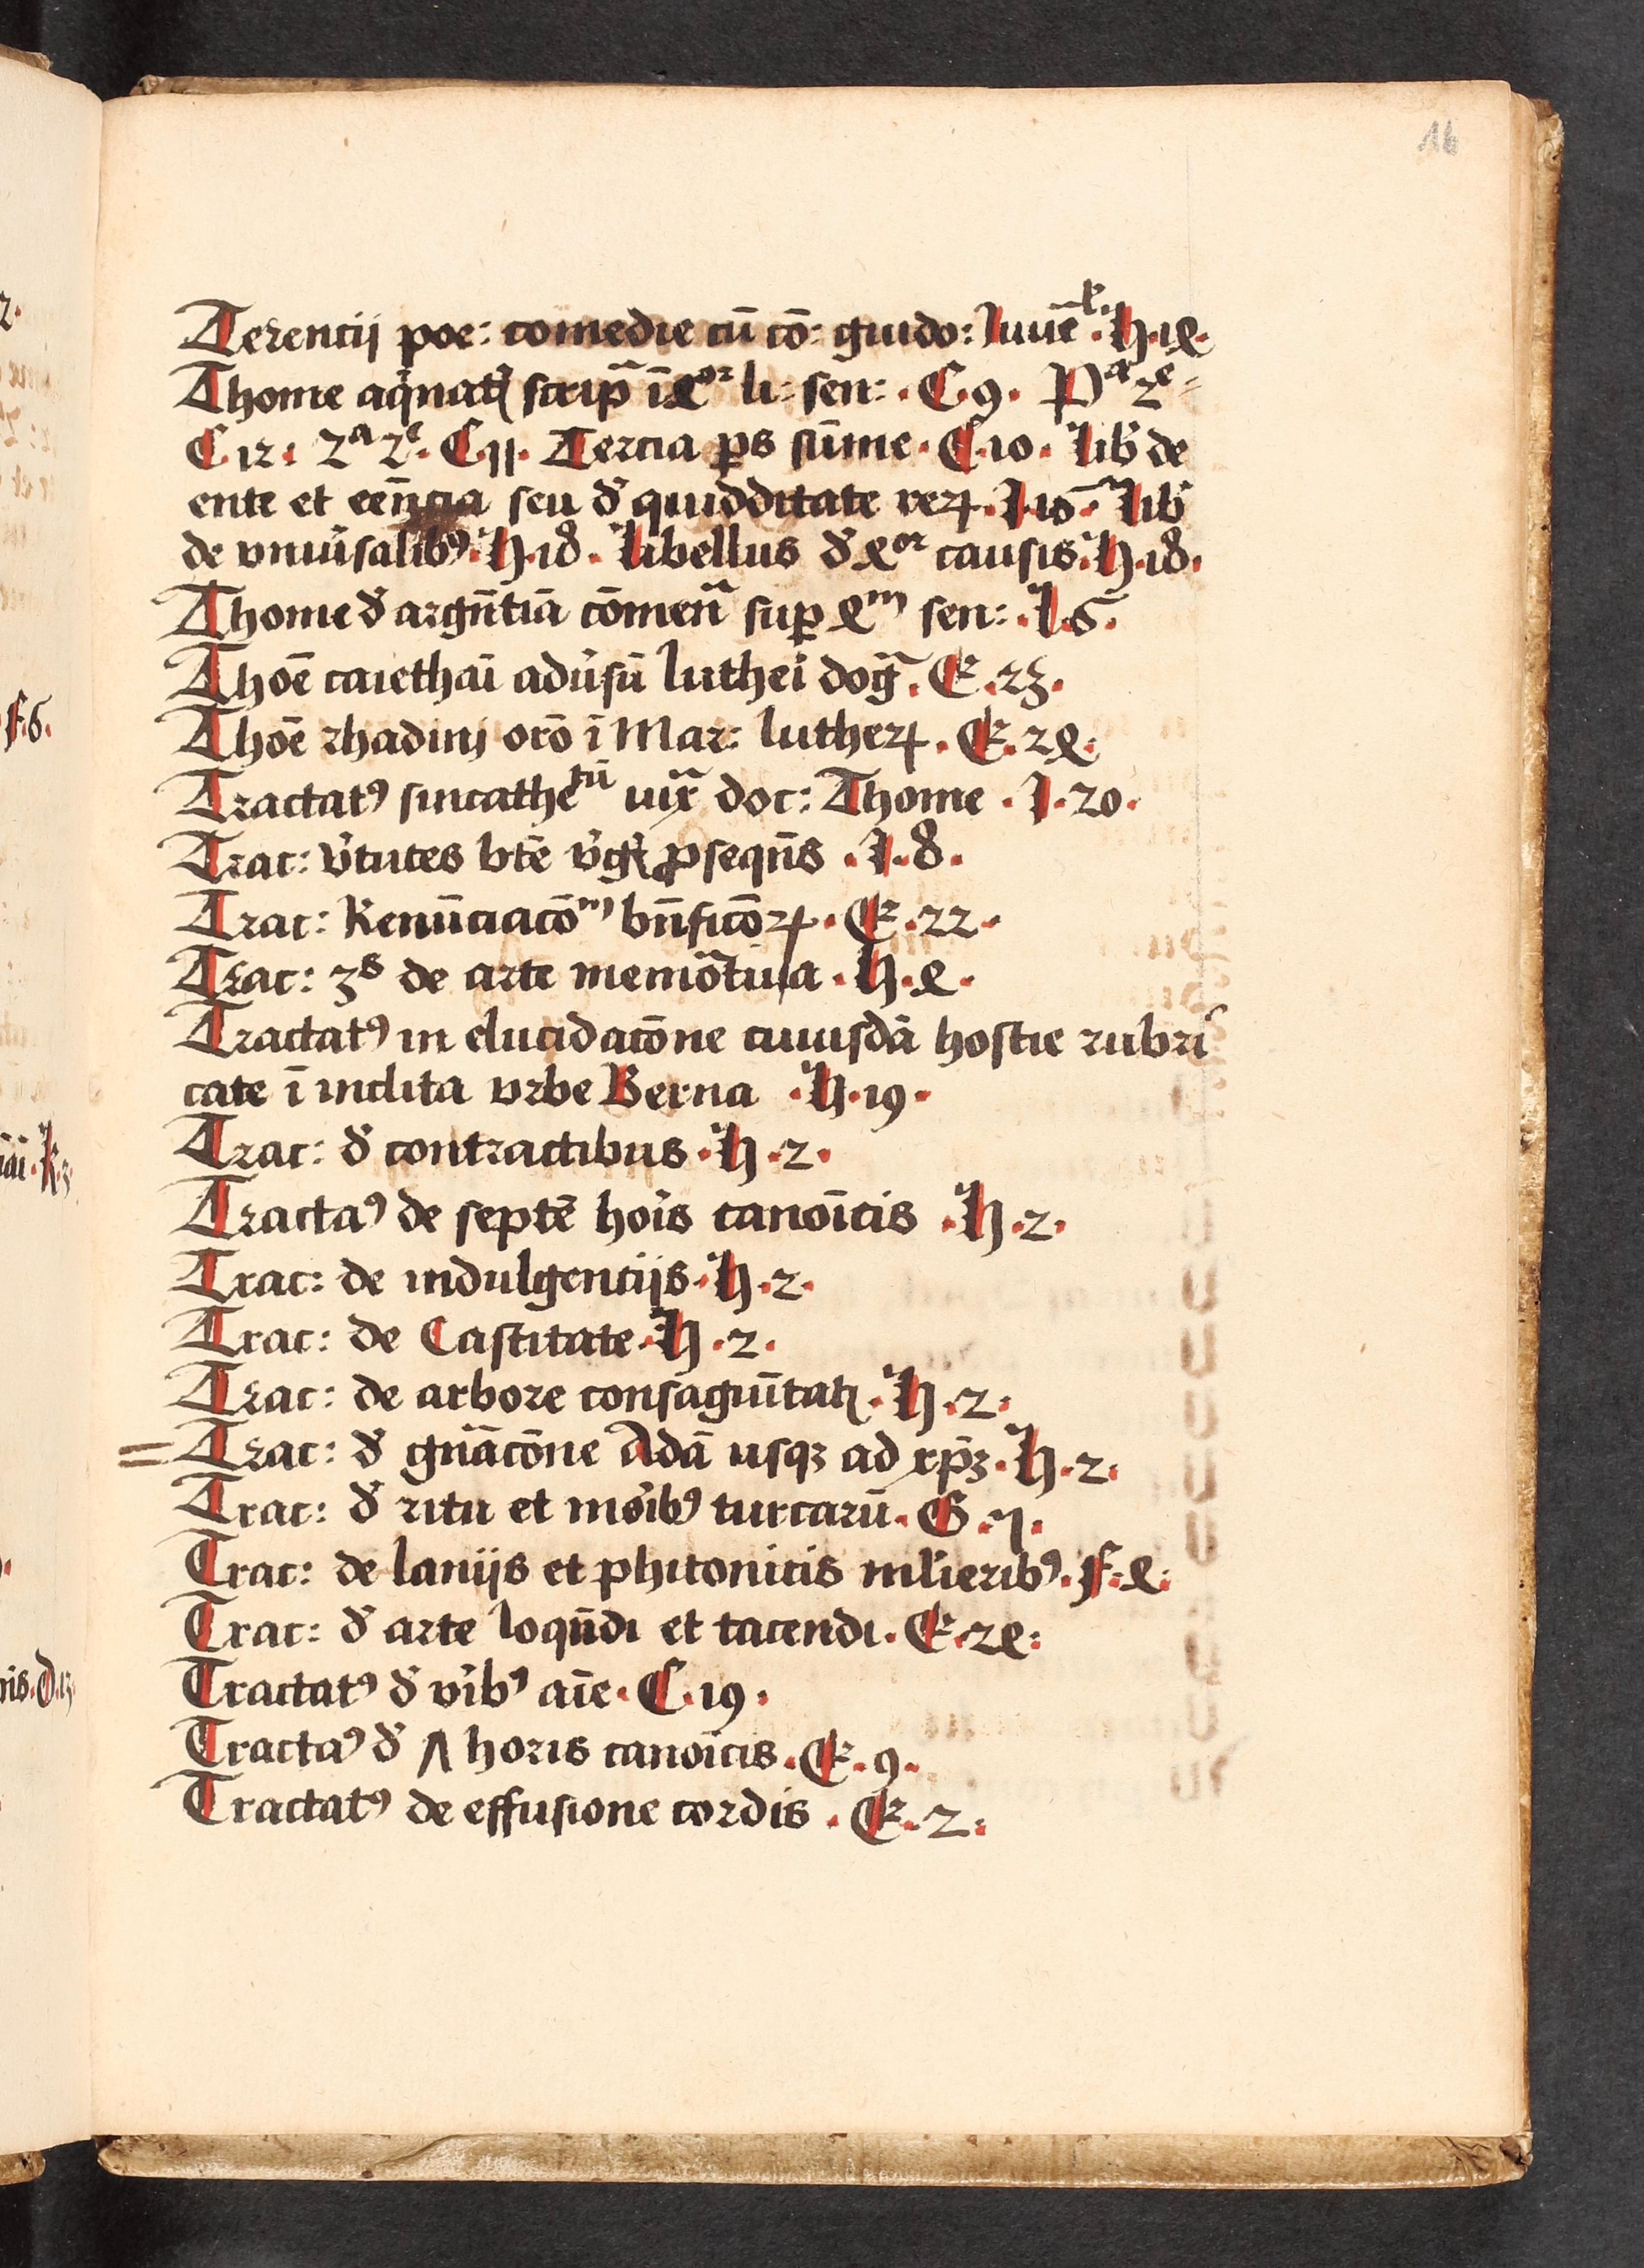 16
Terencij poe: comedie cū cō: guido: Iuuēˡ. H.14.
Thome aq̇natꝭ scrip̄ ī 4ᵒʳ li: sen: . C.9. Pᵃ 2ᵉ
C.12: 2ᵃ 2ᵉ. C.11. Tercia ꝑs sūme. C.10. Lib̾ de
ente et eēncia seu đ quidditate reꝝ. I.15. Lib̾
de vniu̾salibꝰ. H.18. Libellus đ 4ᵒʳ causis. H.18.
Thome đ argn̄tiā cōmen̄ suꝑ 4ᵐ sen: . I.6.
Thoē caiethāi adu̾sū luthei dog̃. E.23.
Thoē rhadinj orō ī Mar: lutheꝝ. E.24:
Tractatꝰ sincatheᵗū uir̃ doc: Thome . I.20.
Trac: v̾tutes btē v̾gꝭ ꝓsequn̄s . I.8.
Trac: Renūciacōᵐ bn̄ficōꝝ. E.22.
Trac: 3ˢ de arte memōtiua . H.4.
Tractatꝰ in elucidacōne cuiusdā hostie rubri
cate ī inclita vrbe Berna . H.19.
Trac: đ contractibus . H.2.
Tractaꝰ de septē hoi̾s canoīcis . H.2.
Trac: de indulgencijs. H.2.
Trac: de Castitate. H.2.
Trac: de arbore consaguītatꝭ. H.2.
= Trac: đ gn̄acōne Adā usqꝫ ad xp̄ꝫ. H.2.
Trac: đ ritu et mōibꝰ turcarū. G.7.
Trac: de lanijs et phitonicis ml̄ieribꝰ. F.4:
Trac: đ arte loqūdi et tacendi. E.24:
Tractatꝰ đ vi̾bꝰ aīe. C.19.
Tractaꝰ đ 7 horis canoīcis. E.9.
Tractatꝰ de effusione cordis . E.2: